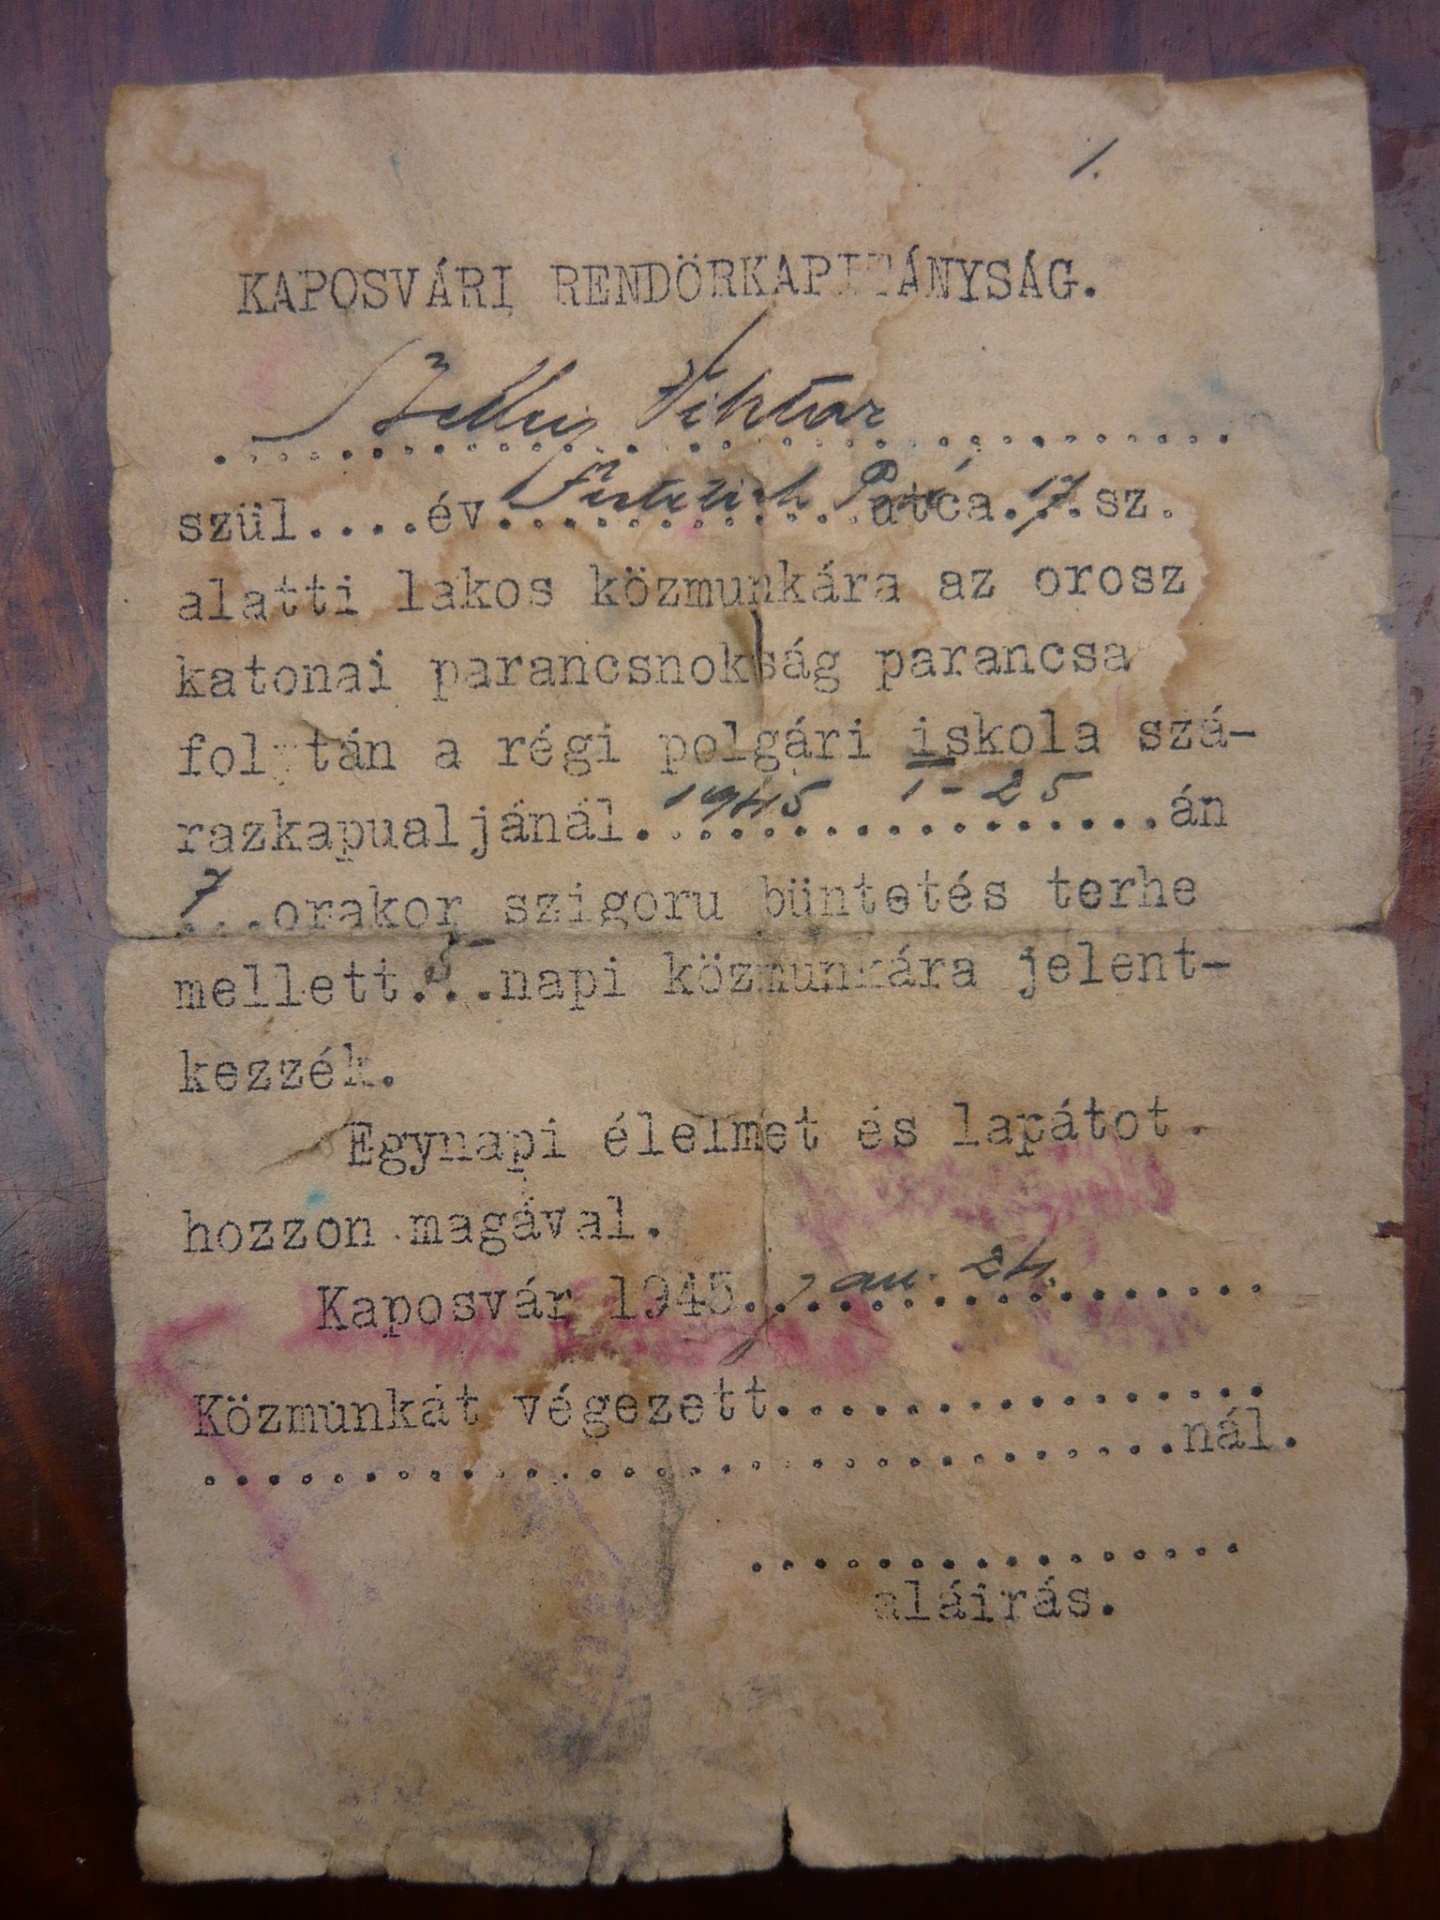 1.
KAPOSVÁRI RENDÖRKAPITÁNYSÁG.
Viktor
szül....év.................utca.17.sz.
alatti lakos közmunkára az orosz
katonai parancsnokság parancsa
folytán a régi polgári iskola szá-
razkapualjánál. 1945 I-25 án
7...orakor szigoru büntetés terhe
mellett.5..napi közmunkára jelent-
kezzék.
Egynapi élelmet és lapátot.
hozzon magával.
Kaposvár 1945. jan. 24.
Közmunkát végezett.................
..............................nál.
................
aláirás.